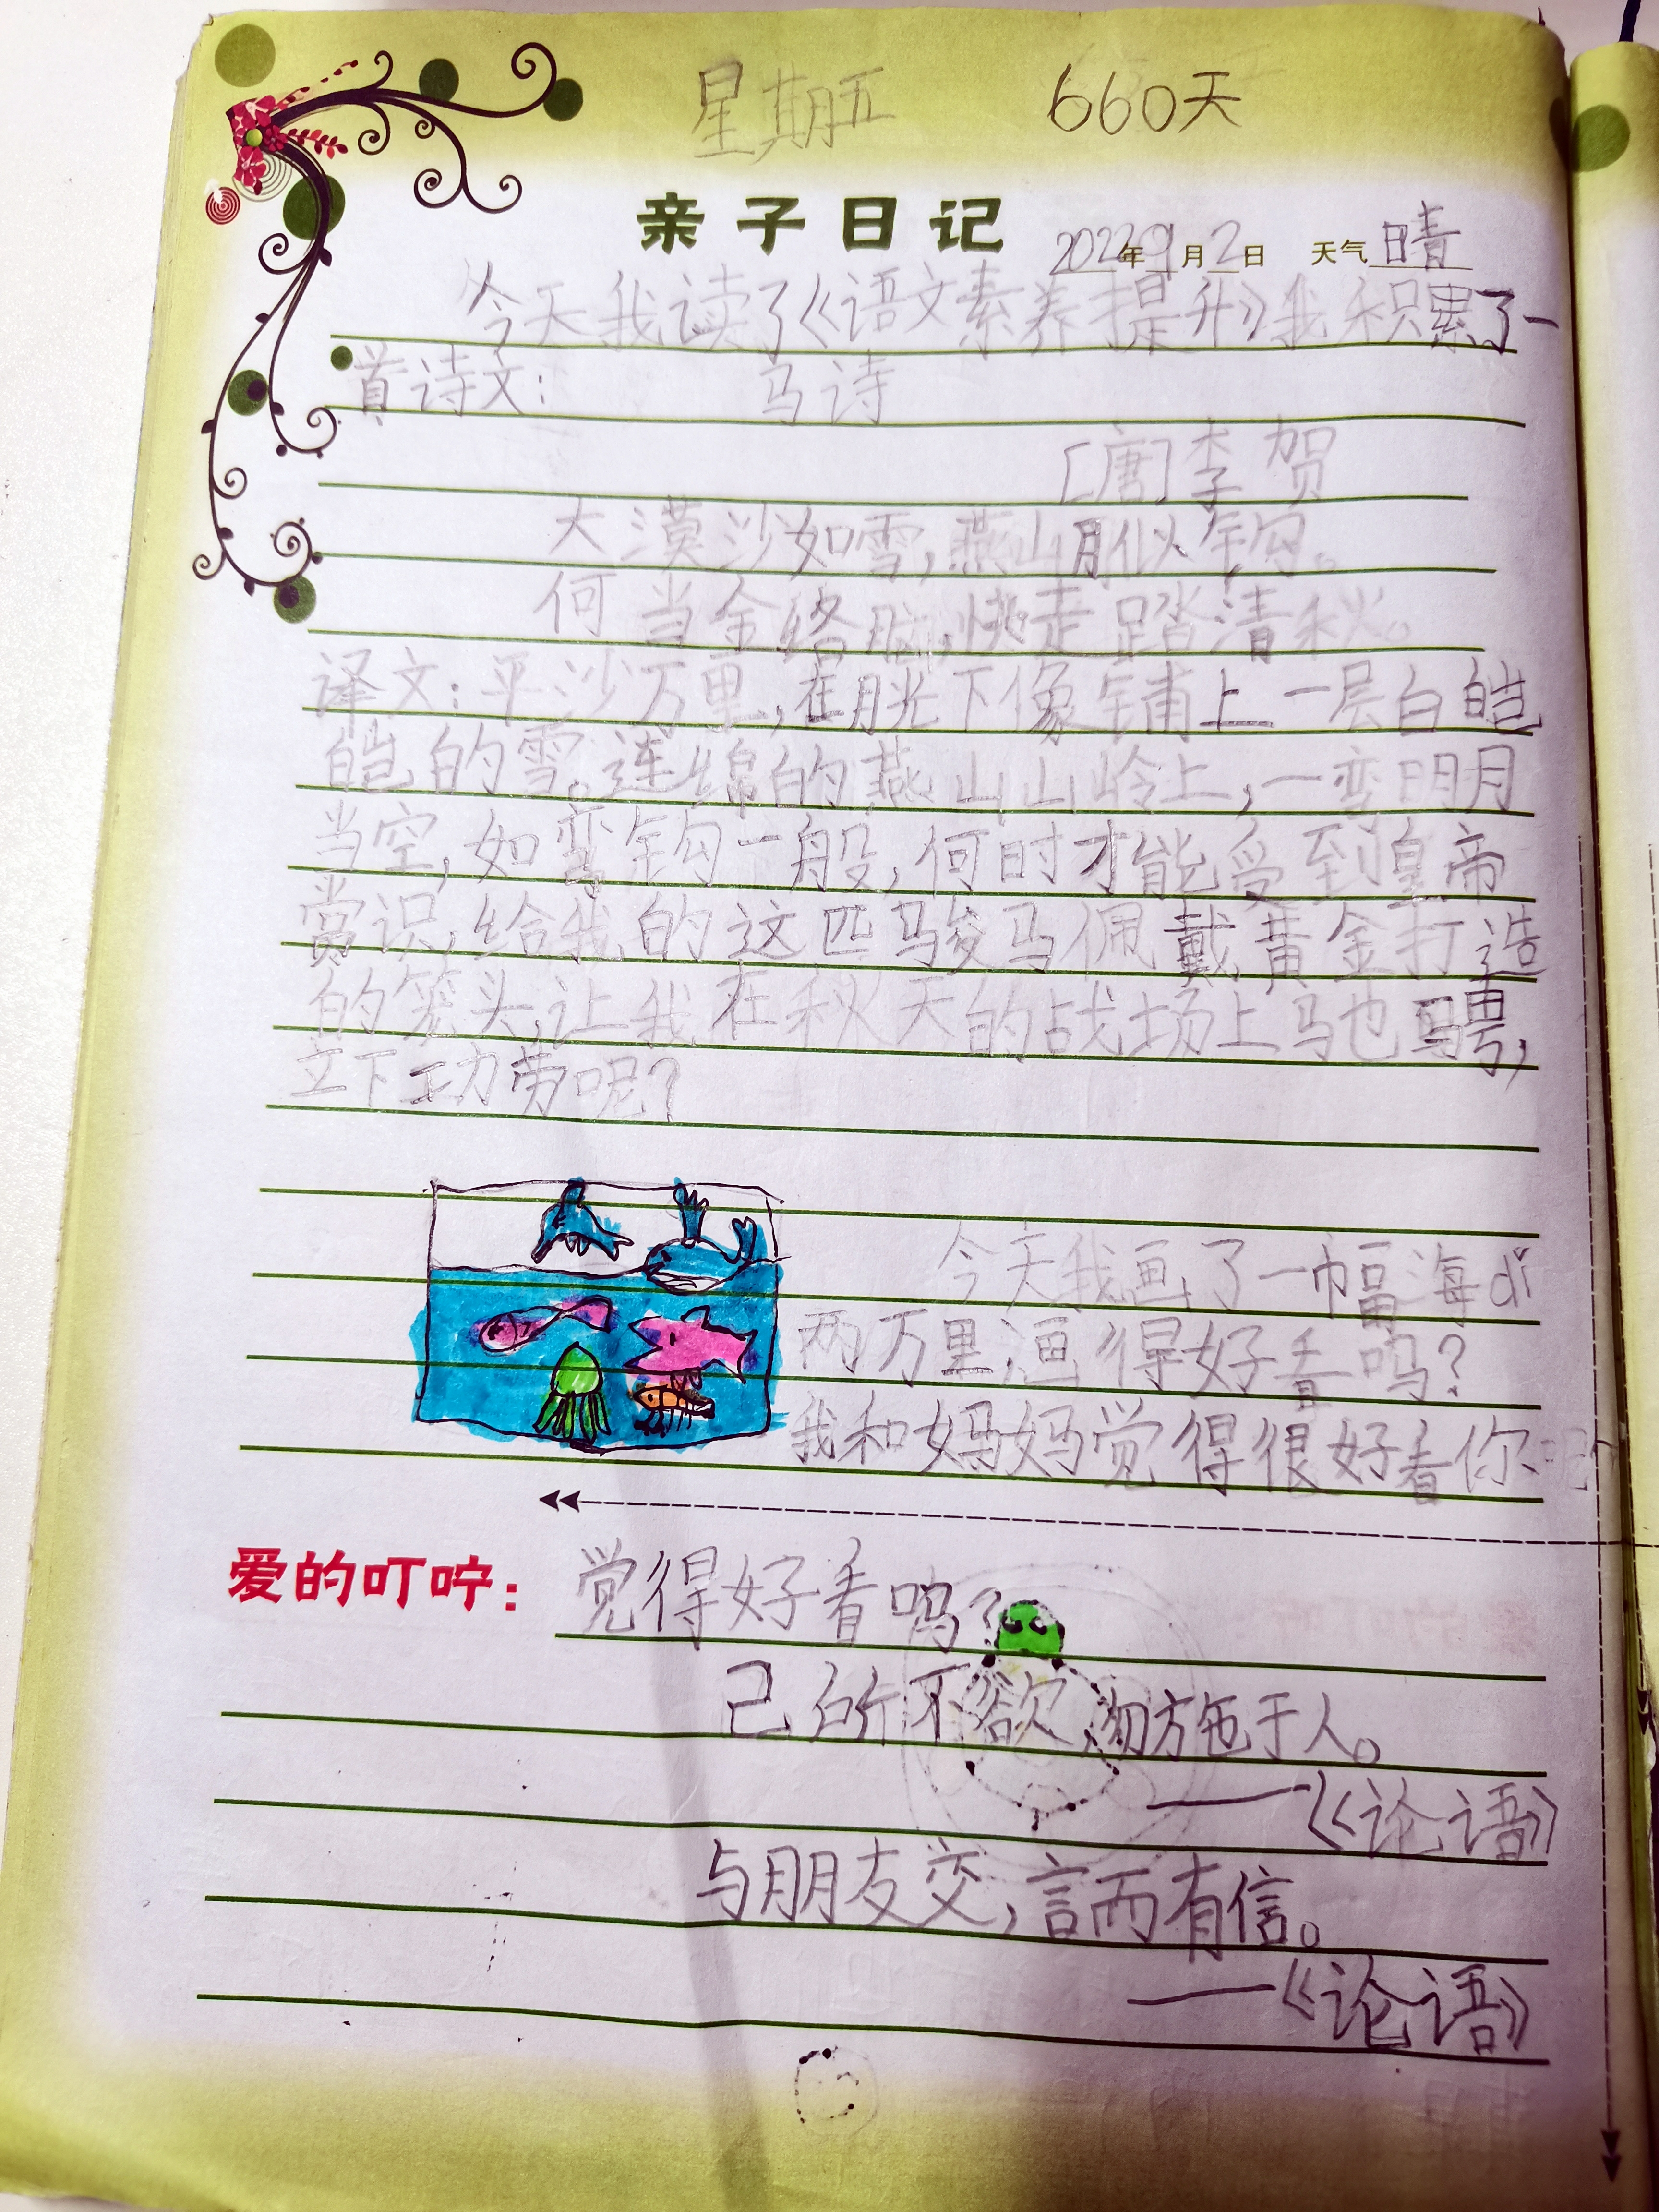 星期五 660天
亲子日记 2022年9月2日 天气晴
今天我读了《语文素养提升》我积累了一
首诗文: 马诗
[唐]李贺
大漠沙如雪,燕山月似钩。
何当金络脑,快走踏清秋。
译文:平沙万里,在月光下像铺上一层白皑
皑的雪。连绵的燕山山岭上,一弯明月
当空,如弯钩一般,何时才能受到皇帝
赏识,给我的这匹骏马佩戴黄金打造
的笼头,让我在秋天的战场上马也骋,
立下功劳呢?
今天我画了一幅海dǐ
两万里,画得好看吗?
我和妈妈觉得很好看你
爱的叮咛: 觉得好看吗?
己所不欲,勿施于人。
——《论语》
与朋友交,言而有信。
——《论语》